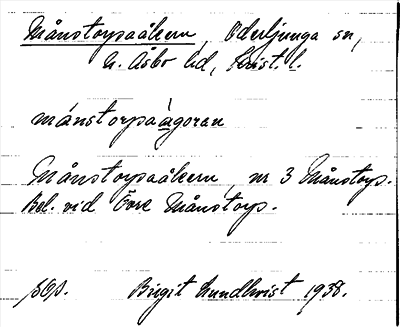 Månstorpsåkern, Oderljunga sn,
N. Åsbo hd, Krist. l.
månstorpsàgoran
Månstorpsåkern, nr 3 Månstorp.
Bel. vid Övre Månstorp.
Birgit Lundkvist 1938.